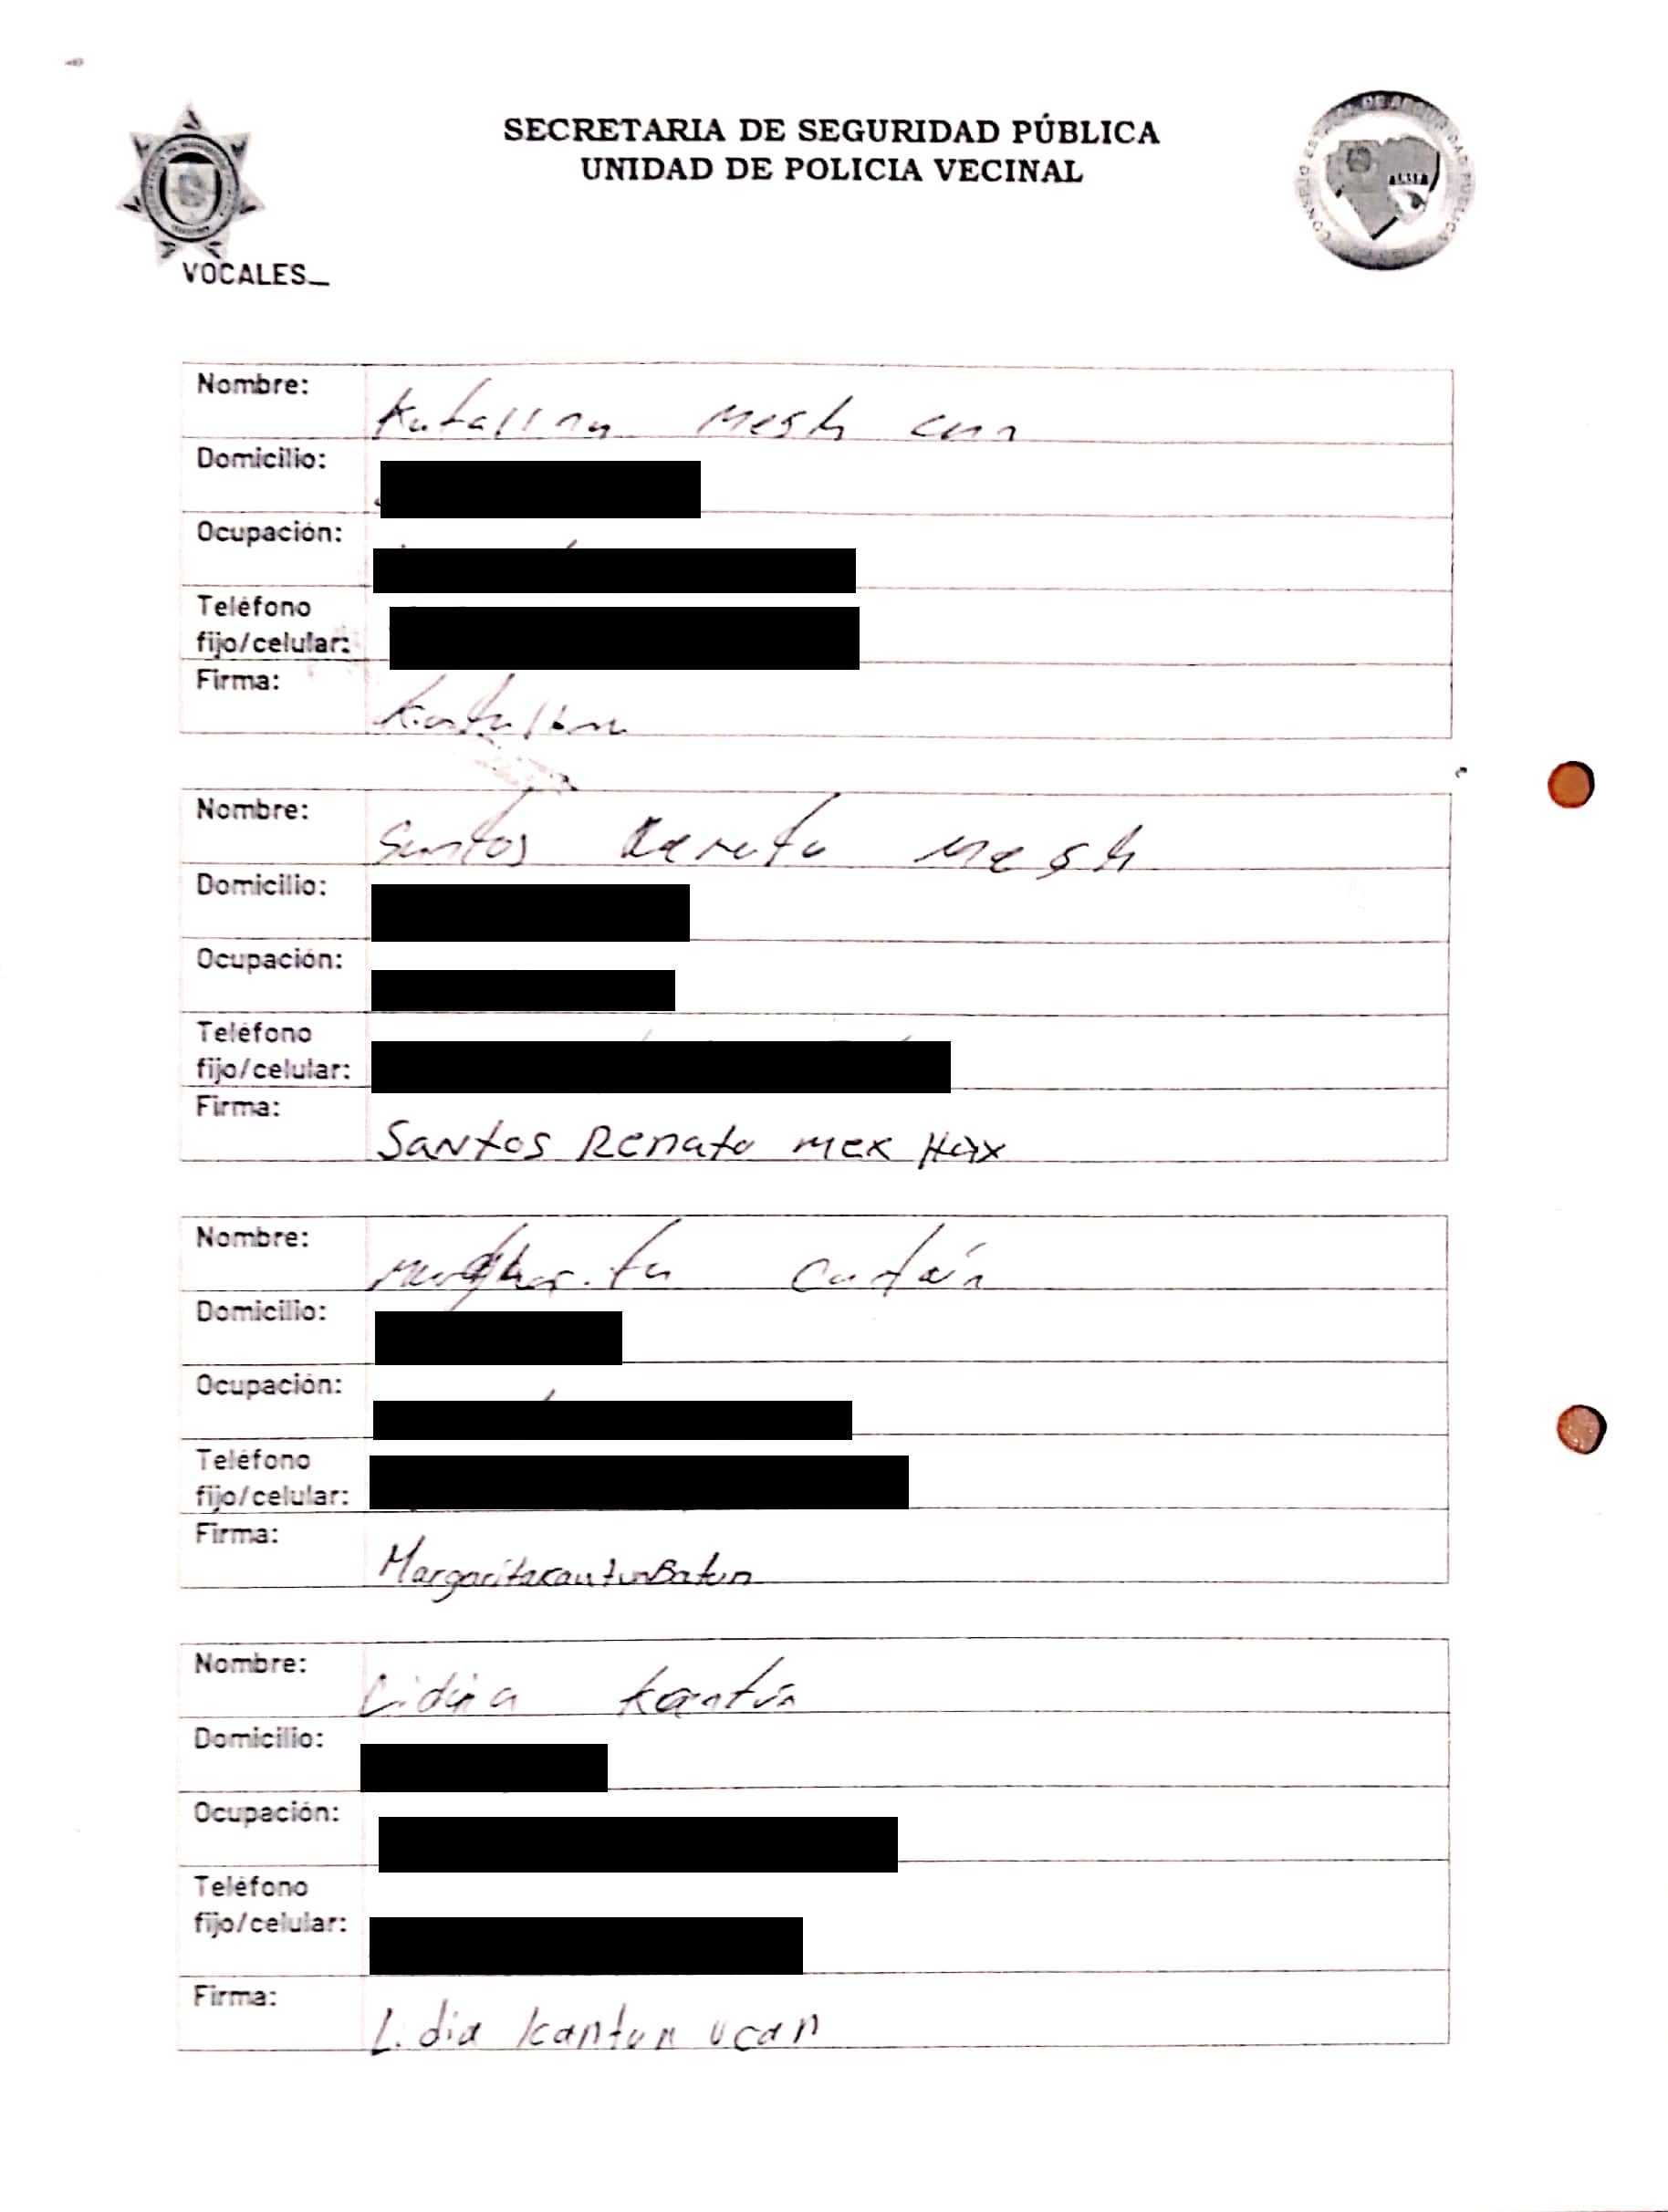 SECRETARIA DE SEGURIDAD PÚBLICA
UNIDAD DE POLICIA VECINAL
VOCALES_
Nombre: Katalina Mesh
Domicilio:
Ocupación:
Teléfono
fijo/celular:
Firma: Katalina
Nombre: Santos Renato Mesh
Domicilio:
Ocupación:
Teléfono
fijo/celular:
Firma: Santos Renato Mex Hax
Nombre:
Domicilio:
Ocupación:
Teléfono
fijo/celular:
Firma: Margarita Kantun Batun
Nombre: Kantún
Domicilio:
Ocupación:
Teléfono
fijo/celular:
Firma: Lidia Kantun Ucan